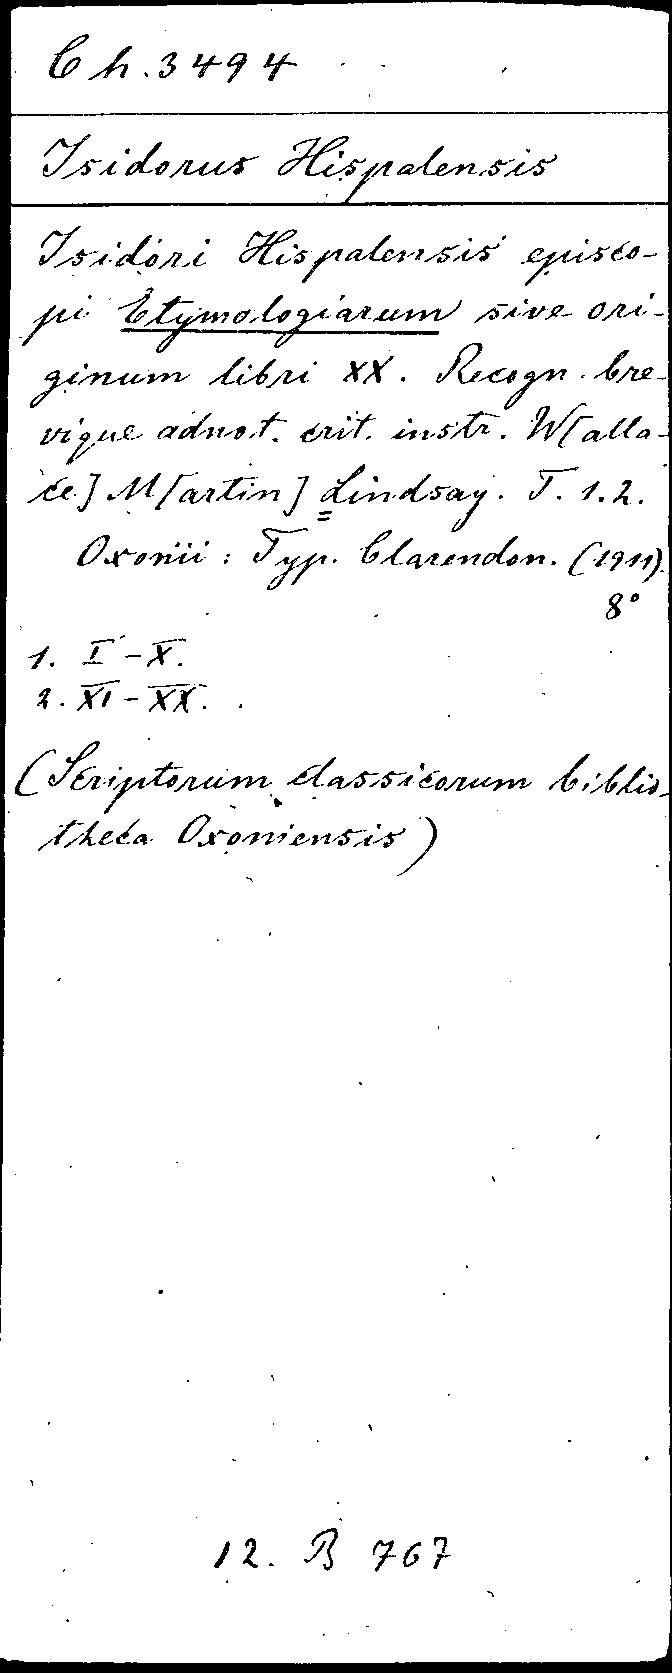 Ch. 3494
Isidorus Hispalensis
Isidori Hispalensis episco-
pi Etymologiarum sive ori-
ginum libri XX. Recogn. bre-
vique adnot. crit. instr. W[alla-
ce] M[artin] Lindsay. T. 1.2.
Oxonii: Typ. Clarendon. (1911).
8°
1. I-X.
2. XI-XX.
(Scriptorum classicorum biblio-
theca Oxoniensis)
12. B 767